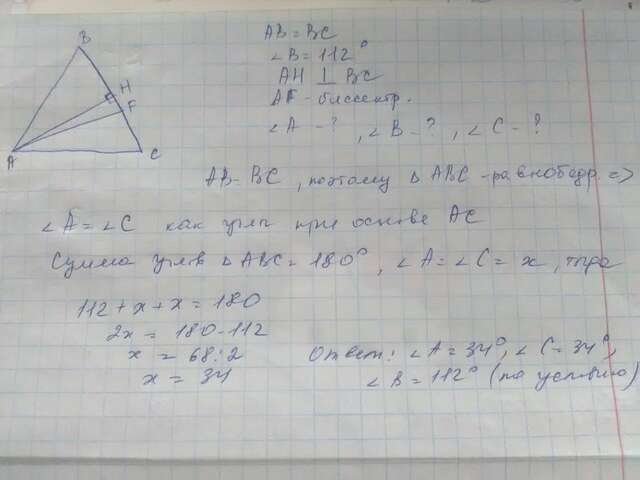 B
H
F
A
C
AB = BC
∠B = 112°
AH ⊥ BC
AF - биссектр.
∠A - ? , ∠B - ? , ∠C - ?
AB = BC , поэтому △ ABC - равнобедр. =>
∠A = ∠C как углы при основе AC
Сумма углов △ ABC = 180° , ∠A = ∠C = x , тогда
112 + x + x = 180
2x = 180 - 112
x = 68 : 2
x = 34
Ответ: ∠A = 34°, ∠C = 34°,
∠B = 112° (по условию)